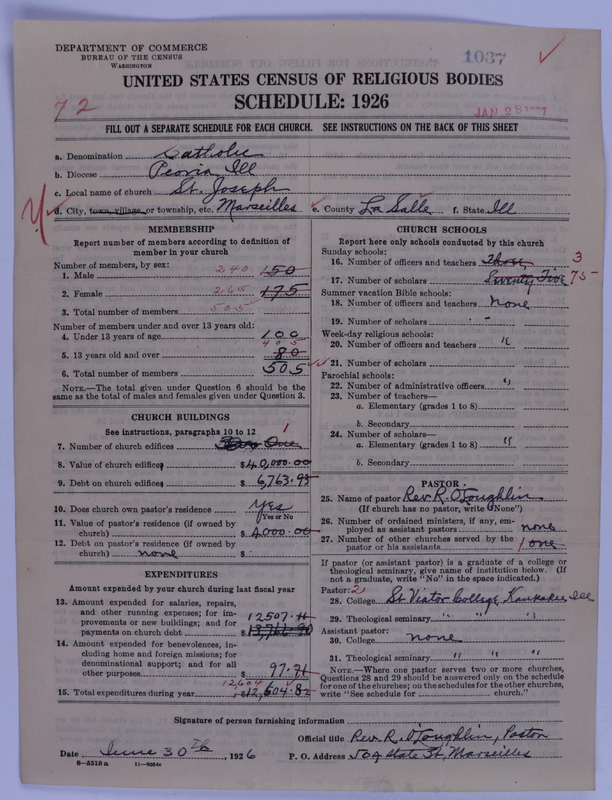 DEPARTMENT OF COMMERCE
BUREAU OF THE CENSUS
WASHINGTON
1037
UNITED STATES CENSUS OF RELIGIOUS BODIES
SCHEDULE: 1926
72
JAN 28 1927
FILL OUT A SEPARATE SCHEDULE FOR EACH CHURCH. SEE INSTRUCTIONS ON THE BACK OF THIS SHEET
a. Denomination Catholic
b. Diocese Peoria Ill
c. Local name of church St. Joseph
d. City, town, village, or township, etc. Marseilles e. County La Salle f. State Ill
MEMBERSHIP
Report number of members according to definition of
member in your church
Number of members, by sex:
1. Male 240 150
2. Female 265 175
3. Total number of members 505
Number of members under and over 13 years old:
4. Under 13 years of age 100
405
5. 13 years old and over 80
6. Total number of members 505
NOTE.—The total given under Question 6 should be the
same as the total of males and females given under Question 3.
CHURCH BUILDINGS
See instructions, paragraphs 10 to 12
7. Number of church edifices One 1
8. Value of church edifices $40,000.00
9. Debt on church edifices $6,763.93
10. Does church own pastor's residence Yes
Yes or No
11. Value of pastor's residence (if owned by
church) $4000.00
12. Debt on pastor's residence (if owned by
church) none $
EXPENDITURES
Amount expended by your church during last fiscal year
13. Amount expended for salaries, repairs,
and other running expenses; for im-
provements or new buildings; and for
payments on church debt $ 12507.11
14. Amount expended for benevolences, in-
cluding home and foreign missions; for
denominational support; and for all
other purposes $ 97.71
12,604
15. Total expenditures during year $12,604.82
CHURCH SCHOOLS
Report here only schools conducted by this church
Sunday schools:
16. Number of officers and teachers Three 3
17. Number of scholars Seventy Five 75
Summer vacation Bible schools:
18. Number of officers and teachers none
19. Number of scholars "
Week-day religious schools:
20. Number of officers and teachers "
21. Number of scholars
Parochial schools:
22. Number of administrative officers "
23. Number of teachers—
a. Elementary (grades 1 to 8)
b. Secondary
24. Number of scholars—
a. Elementary (grades 1 to 8) "
b. Secondary
PASTOR
25. Name of pastor Rev. R. O'Loughlin
(If church has no pastor, write "None")
26. Number of ordained ministers, if any, em-
ployed as assistant pastors none
27. Number of other churches served by the
pastor or his assistants 1 one
If pastor (or assistant pastor) is a graduate of a college or
theological seminary, give name of institution below. (If
not a graduate, write "No" in the space indicated.)
Pastor: 2
28. College St Viator College, Kankakee, Ill
29. Theological seminary " " "
Assistant pastor:
30. College none
31. Theological seminary " " "
NOTE.—Where one pastor serves two or more churches,
Questions 28 and 29 should be answered only on the schedule
for one of the churches; on the schedules for the other churches,
write "See schedule for church."
Signature of person furnishing information
Official title Rev. R. O'Loughlin, Pastor
Date June 30th, 1926 P. O. Address 504 State St, Marseilles
8—5518a